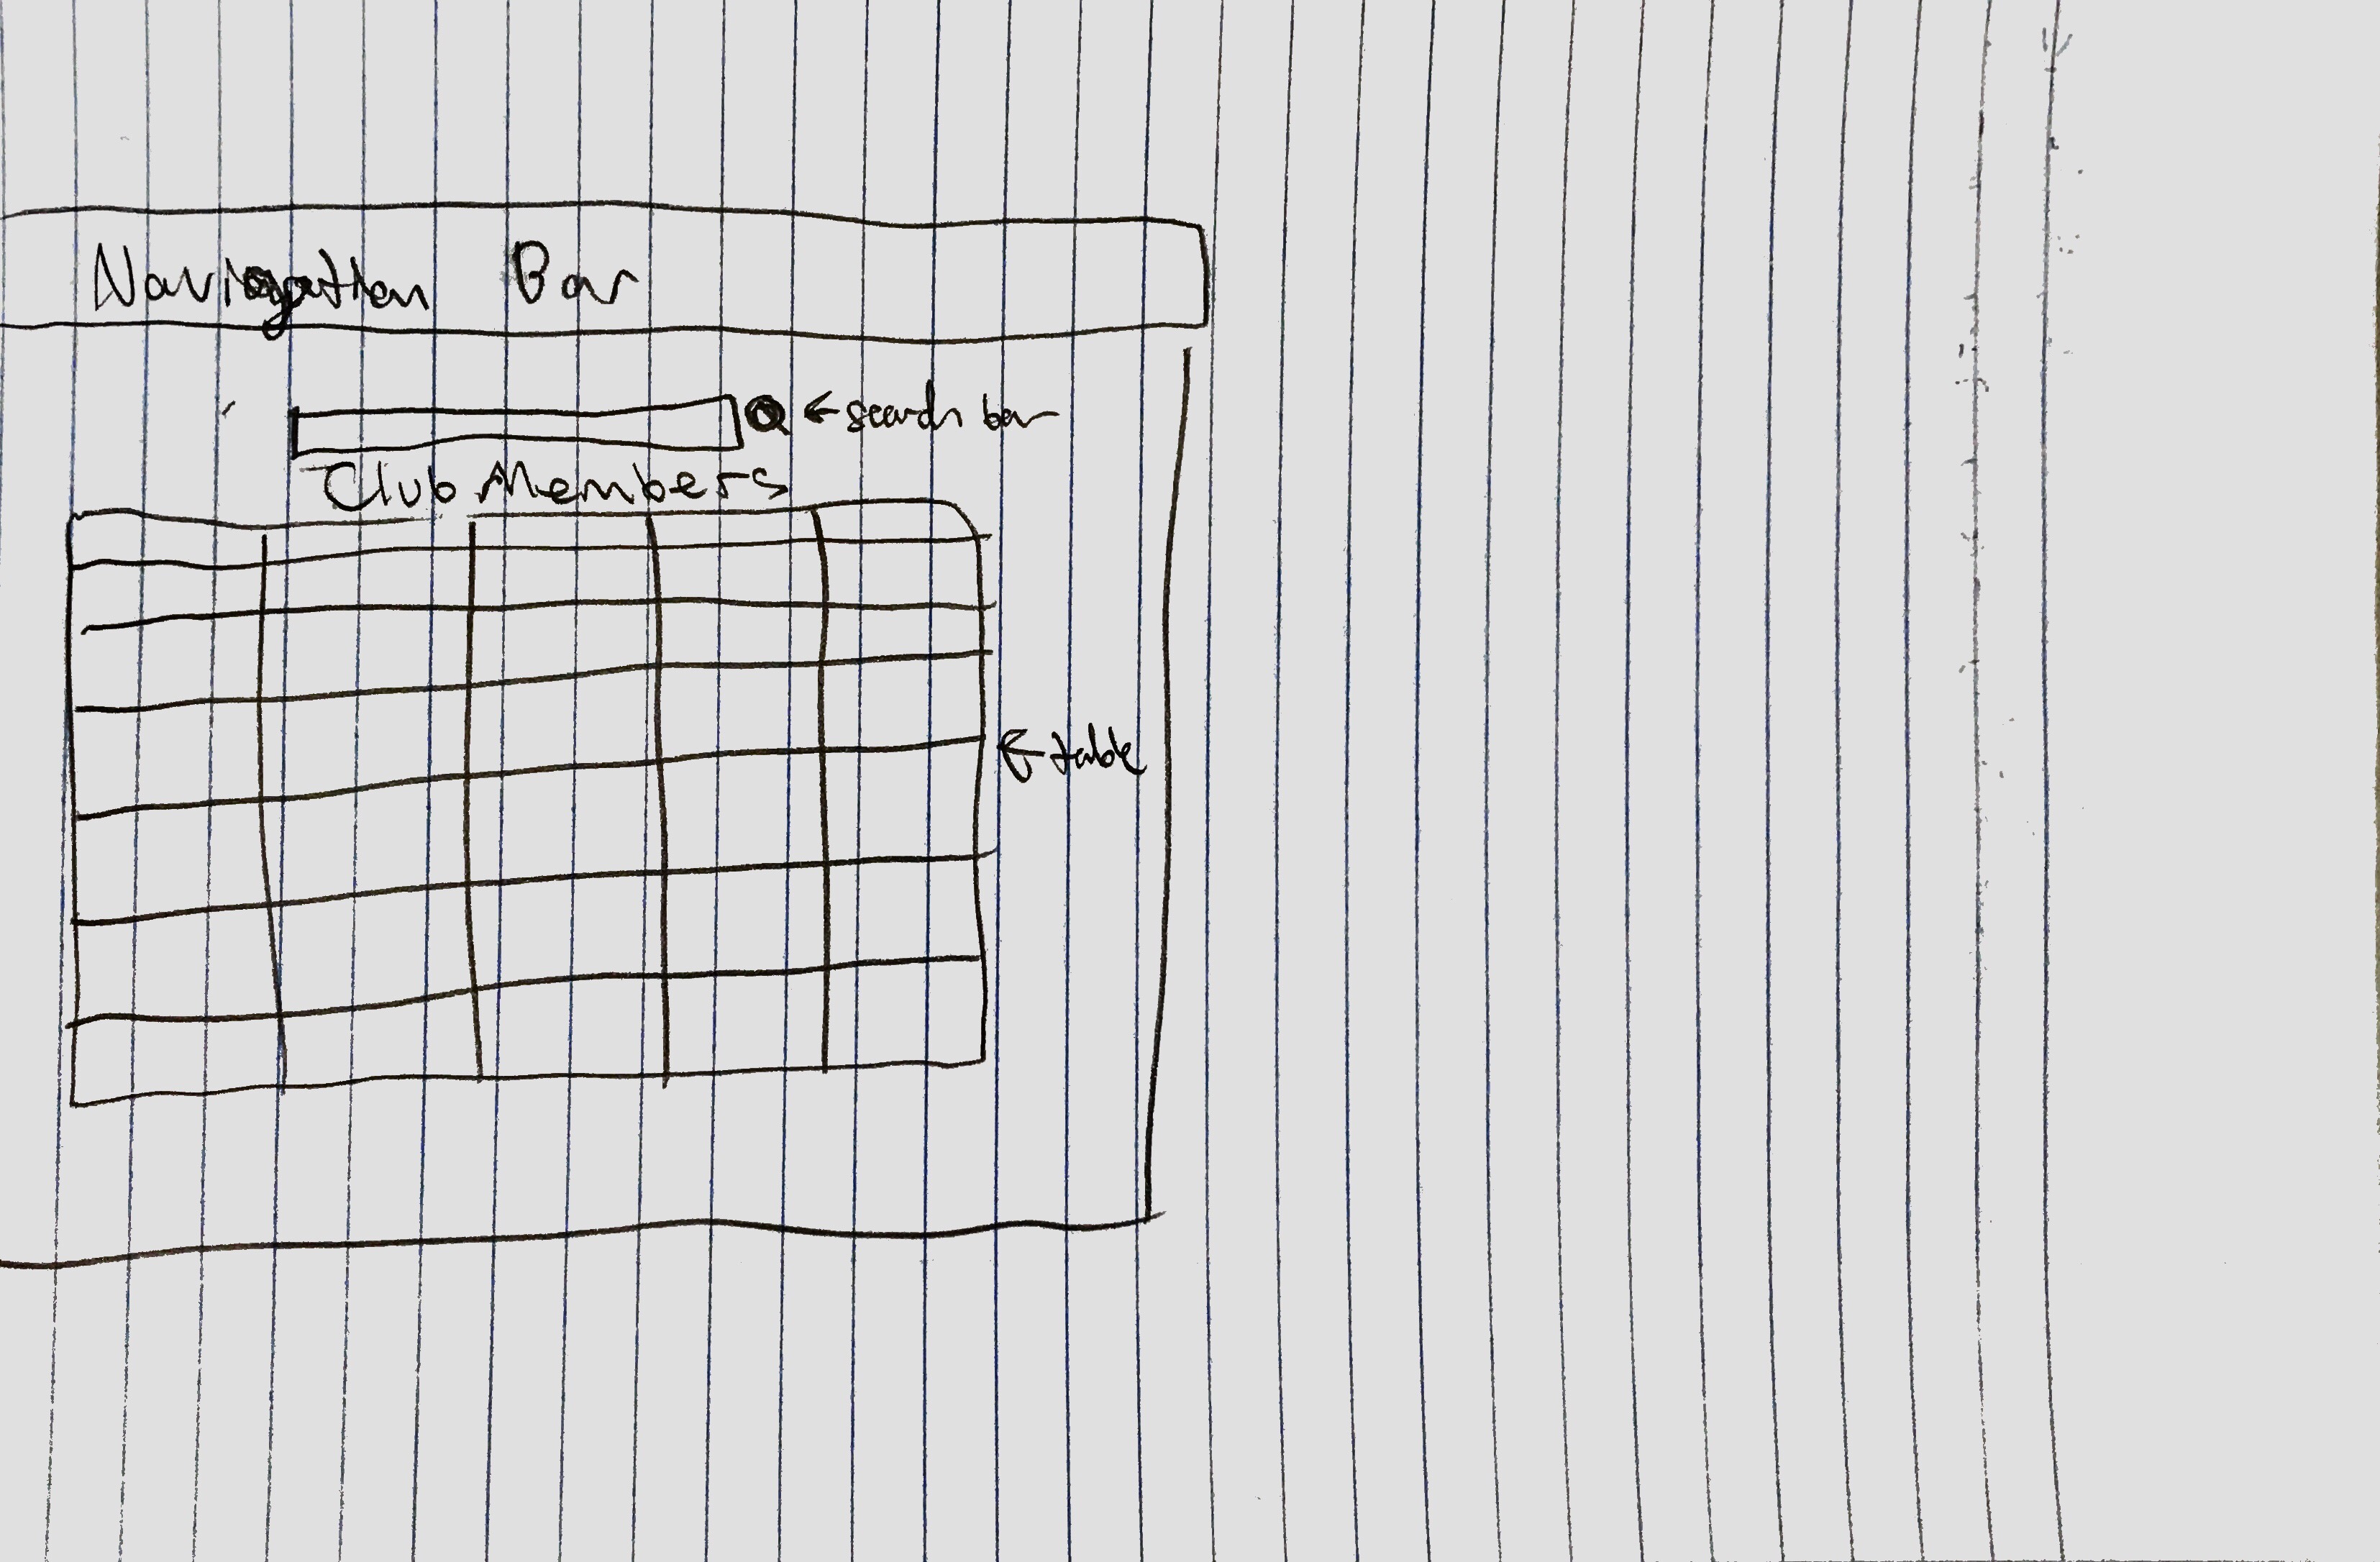 Navigation Bar
← search bar
Club Members
← table